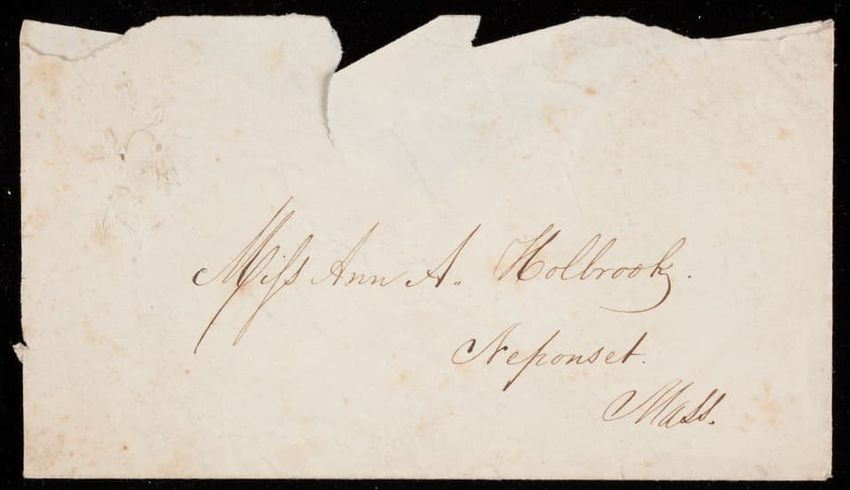 Miſs Ann A. Holbrook.
Neponset.
Mass.